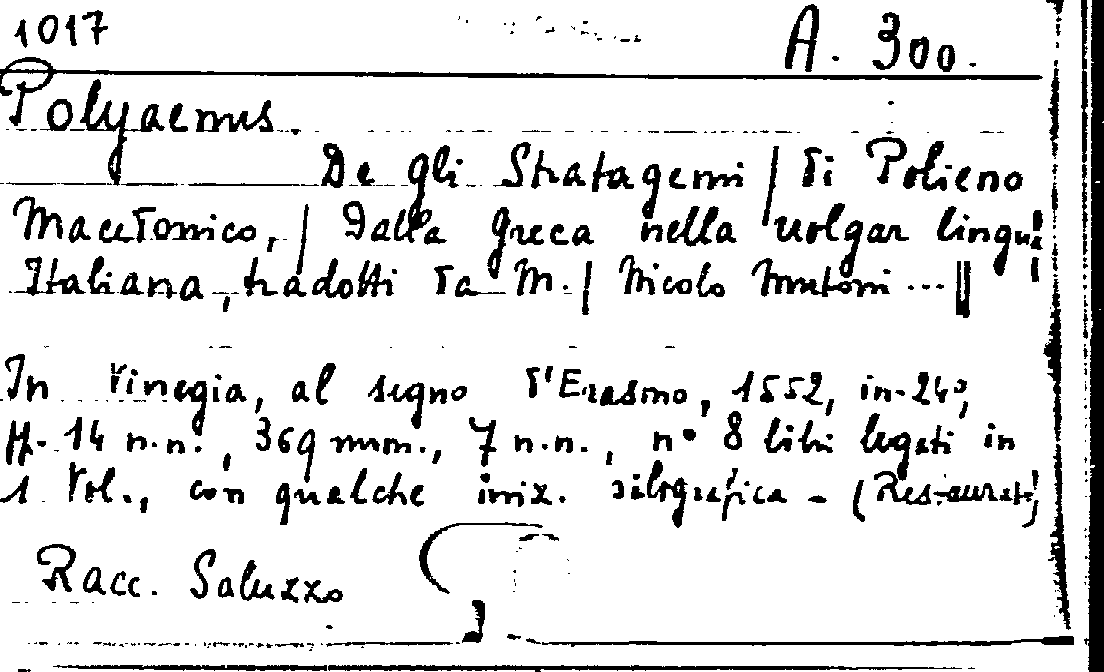 1017 A. 300.
Polyaenus.
De gli Stratagemi | di Polieno
Macedonico, | Dalla Greca nella volgar lingua
Italiana, tradotti da M. | Nicolo Mutoni ... ||
In Vinegia, al segno d'Erasmo, 1552, in-24º,
ff. 14 n.n., 369 num., 7 n.n., nº 8 libri legati in
1 Vol., con qualche iniz. silografica - (Restaurato)
Racc. Saluzzo